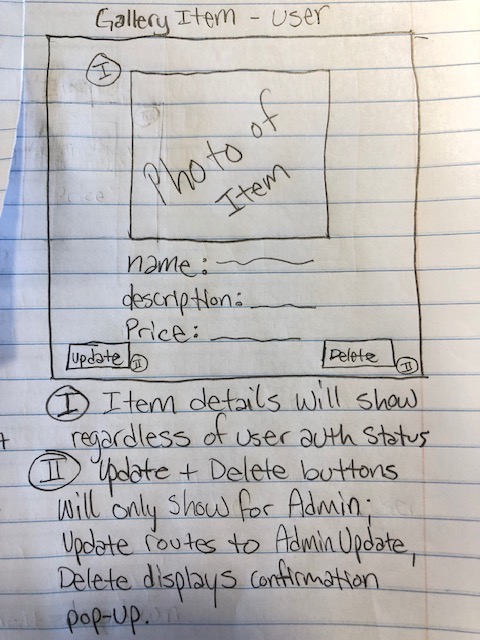 Gallery Item - User
I
Photo of
Item
name:
description:
Price:
Update II
Delete II
I Item details will show
regardless of user auth status
II Update + Delete buttons
will only show for Admin;
Update routes to AdminUpdate,
Delete displays confirmation
pop-up.